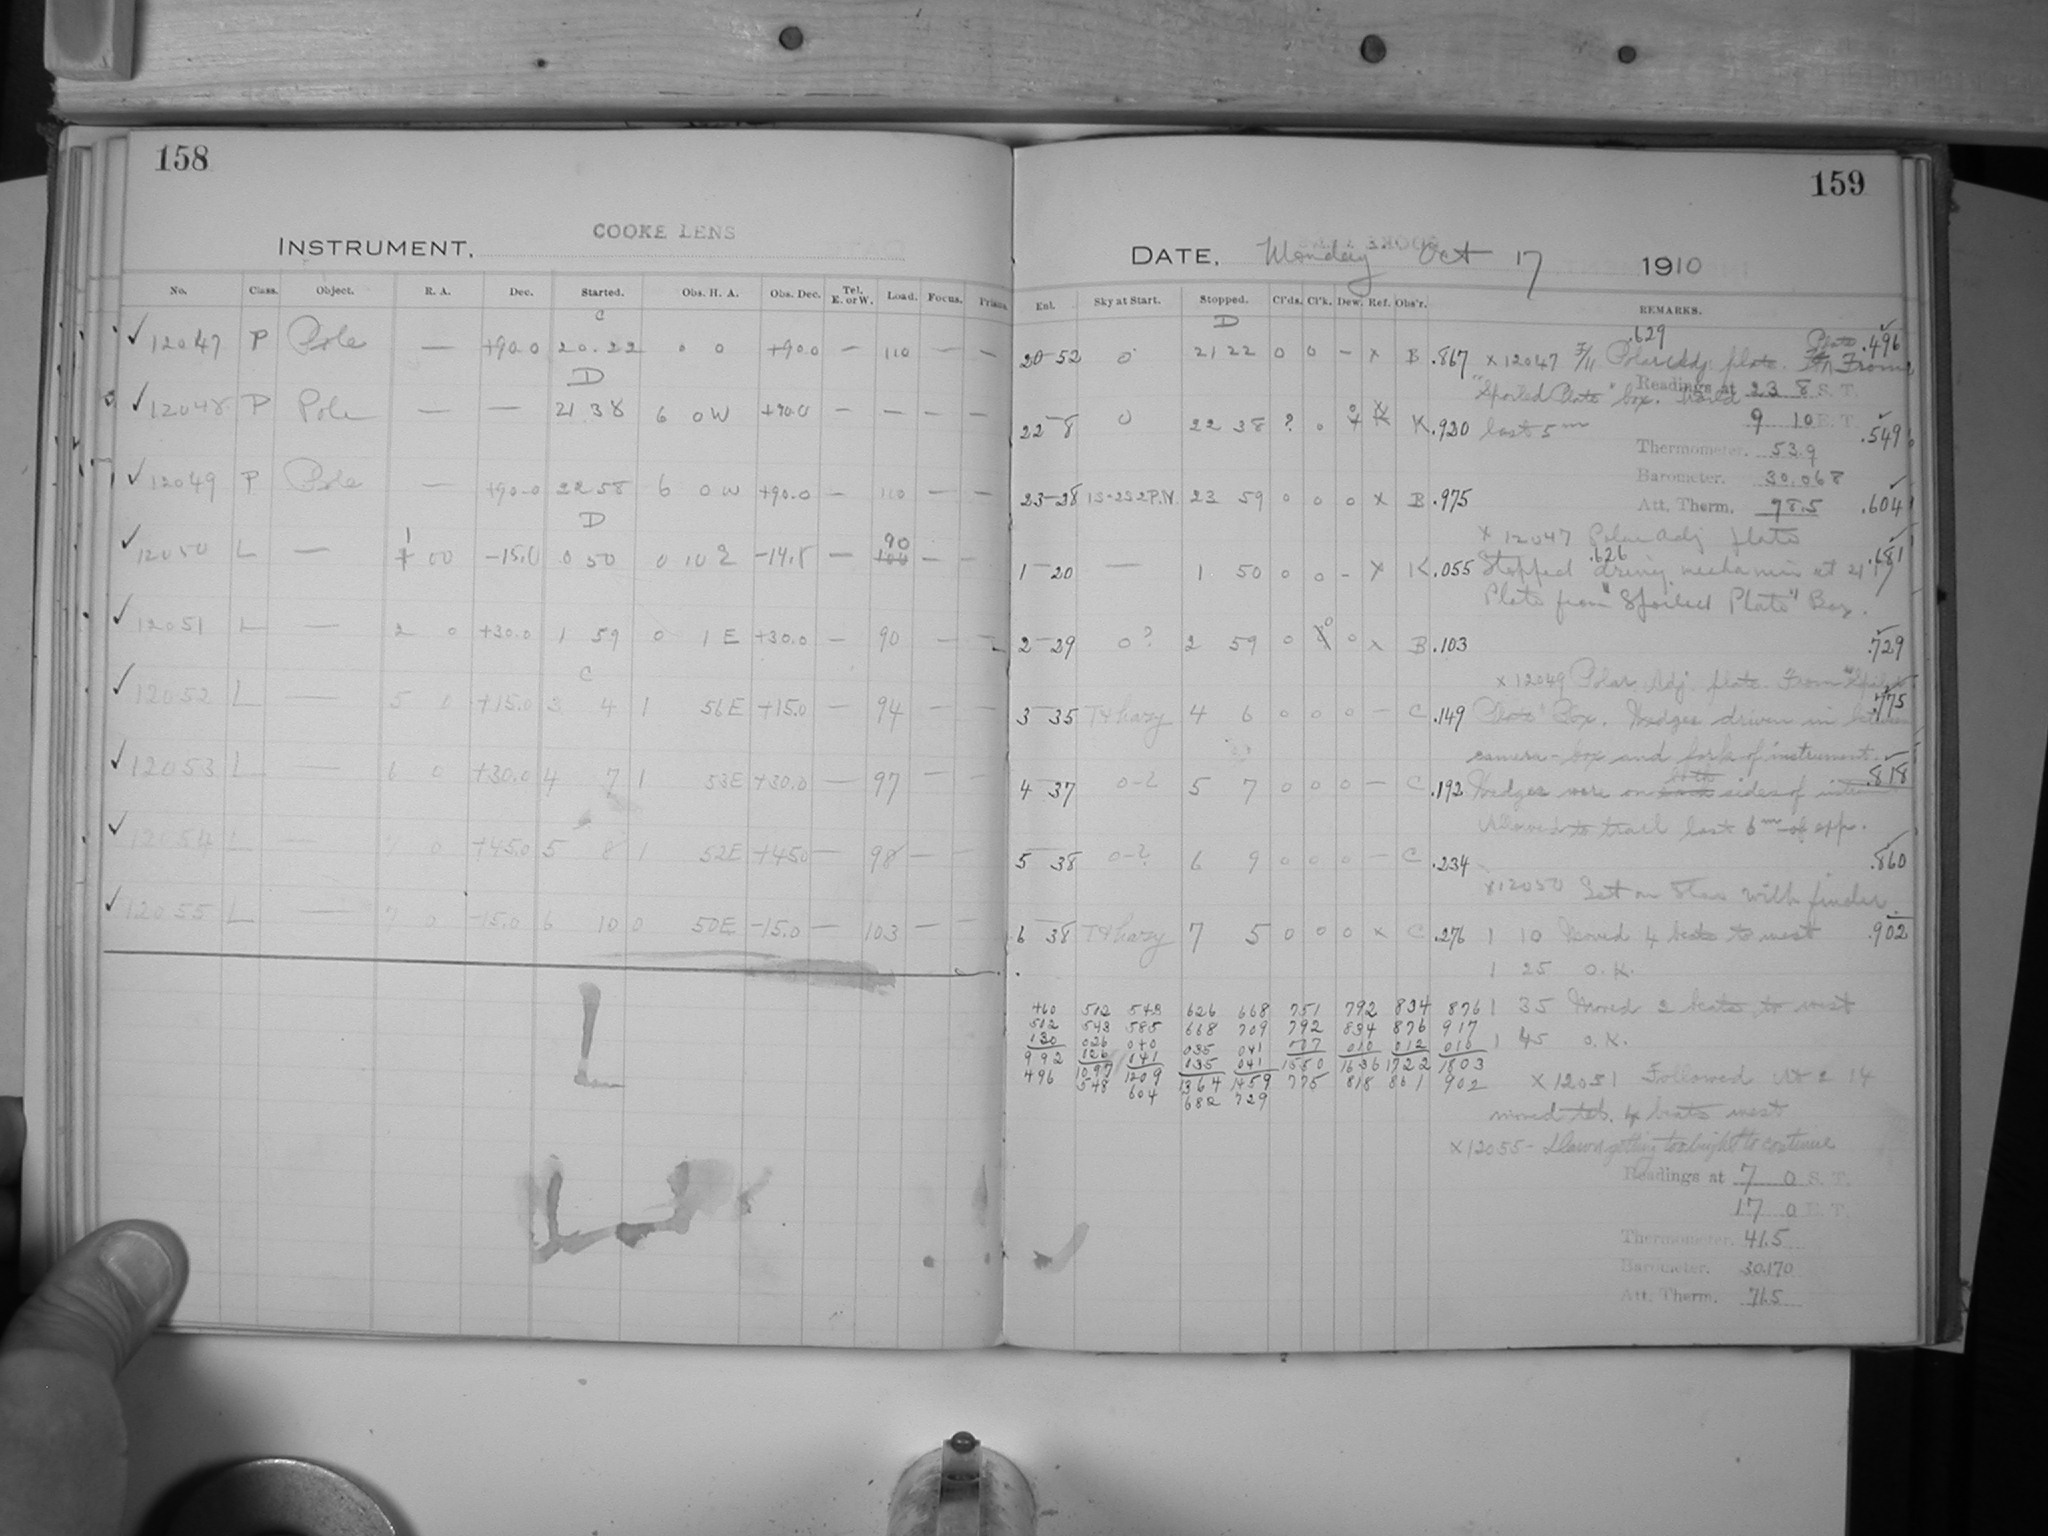 158
INSTRUMENT, COOKE LENS
No. Class. Object. R. A. Dec. Started. Obs. H. A. Obs. Dec. Tel. E. or W. Load. Focus. Prism.
C
✓ 12047 P Pole — +90.0 20.22 0 0 +90.0 — 110 — —
D
✓ 12048 P Pole — — 21 38 6 0W +90.0 — — — —
✓ 12049 P Pole — +90.0 22 58 6 0W +90.0 — 110 — —
D
✓ 12050 L — 1 00 -15.0 0 50 0 10 E -14.8 — 90 100 — —
✓ 12051 L — 2 0 +30.0 1 59 0 1E +30.0 — 90 — —
C
✓ 12052 L — 5 0 +15.0 3 4 1 56E +15.0 — 94 — —
✓ 12053 L — 6 0 +30.0 4 7 1 53E +30.0 — 97 — —
✓ 12054 L — 7 0 +45.0 5 8 1 52E +45.0 — 98 — —
✓ 12055 L — 7 0 -15.0 6 10 0 50E -15.0 — 103 — —
159
DATE, Monday Oct 17 1910
Ent. Sky at Start. Stopped. Cl'ds. Cl'k. Dew. Ref. Obs'r. REMARKS.
D
20-52 0 21 22 0 0 — x B .867
22-8 0 22 38 ? 0 K .920
23-28 23 59 0 0 0 x B .975
1-20 — 1 50 0 0 — x K .055
2-29 0? 2 59 0 0 0 x B .103
3 35 T & hazy 4 6 0 0 0 — C .149
4 37 0-2 5 7 0 0 0 — C .192
5 38 0-? 6 9 0 0 0 — C .234
6 38 T & hazy 7 5 0 0 0 x C .276
.629 Plate .496
x 12047 F/11 Polar Adj. plate. From
"Spoiled Plate" box.
last 5m
Readings at 23 8 S. T.
9 10 E. T. .549
Thermometer. 53.9
Barometer. 30.068
Att. Therm. 78.5 .604
x 12047 Polar Adj plate
.626 .681
Stopped driving mechanism at 21 17
Plate from "Spoiled Plate" Box.
.729
x 12049 Polar Adj. plate. From "Spoiled
.775
Plate" Box. Wedges driven in between
camera-box and fork of instrument.
.818
Wedges were on both sides of
Allowed to trail last 6m of exp.
.860
x12050 Set on Star with finder
1 10 Moved 4 beats to west .902
1 25 O.K.
1 35 Moved 2 beats to west
1 45 O.K.
x 12051 Followed At 2 14
moved tel. 4 beats west
x 12055 - Dawn getting too bright to continue
Readings at 7 0 S. T.
17 0 E. T.
Thermometer. 41.5
Barometer. 30.170
Att. Therm. 71.5
460 512 543 626 668 751 792 834 876
512 543 585 668 709 792 834 876 917
130 026 040 035 041 007 010 012 010
992 126 041 035 041 1550 1636 1722 1803
496 1097 1209 1364 1459 775 818 861 902
548 604 682 729